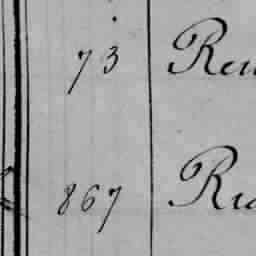 73 Ren
867 Ri